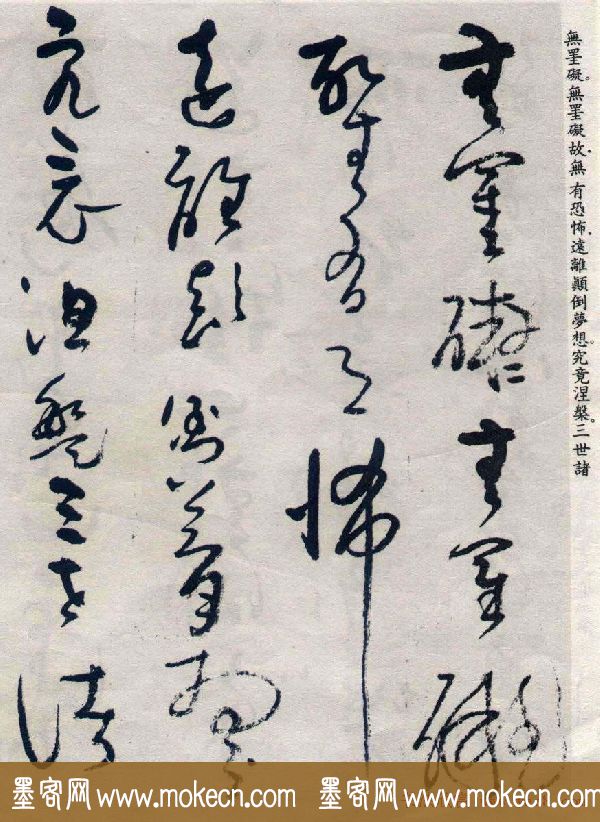 無罣礙。無罣礙故，無有恐怖，遠離顛倒夢想。究竟涅槃。三世諸
無罣礙無罣礙
故無有恐怖
遠離顛倒夢想
究竟涅槃三世諸
墨客网 www.mokecn.com 墨客网 www.mokecn.com